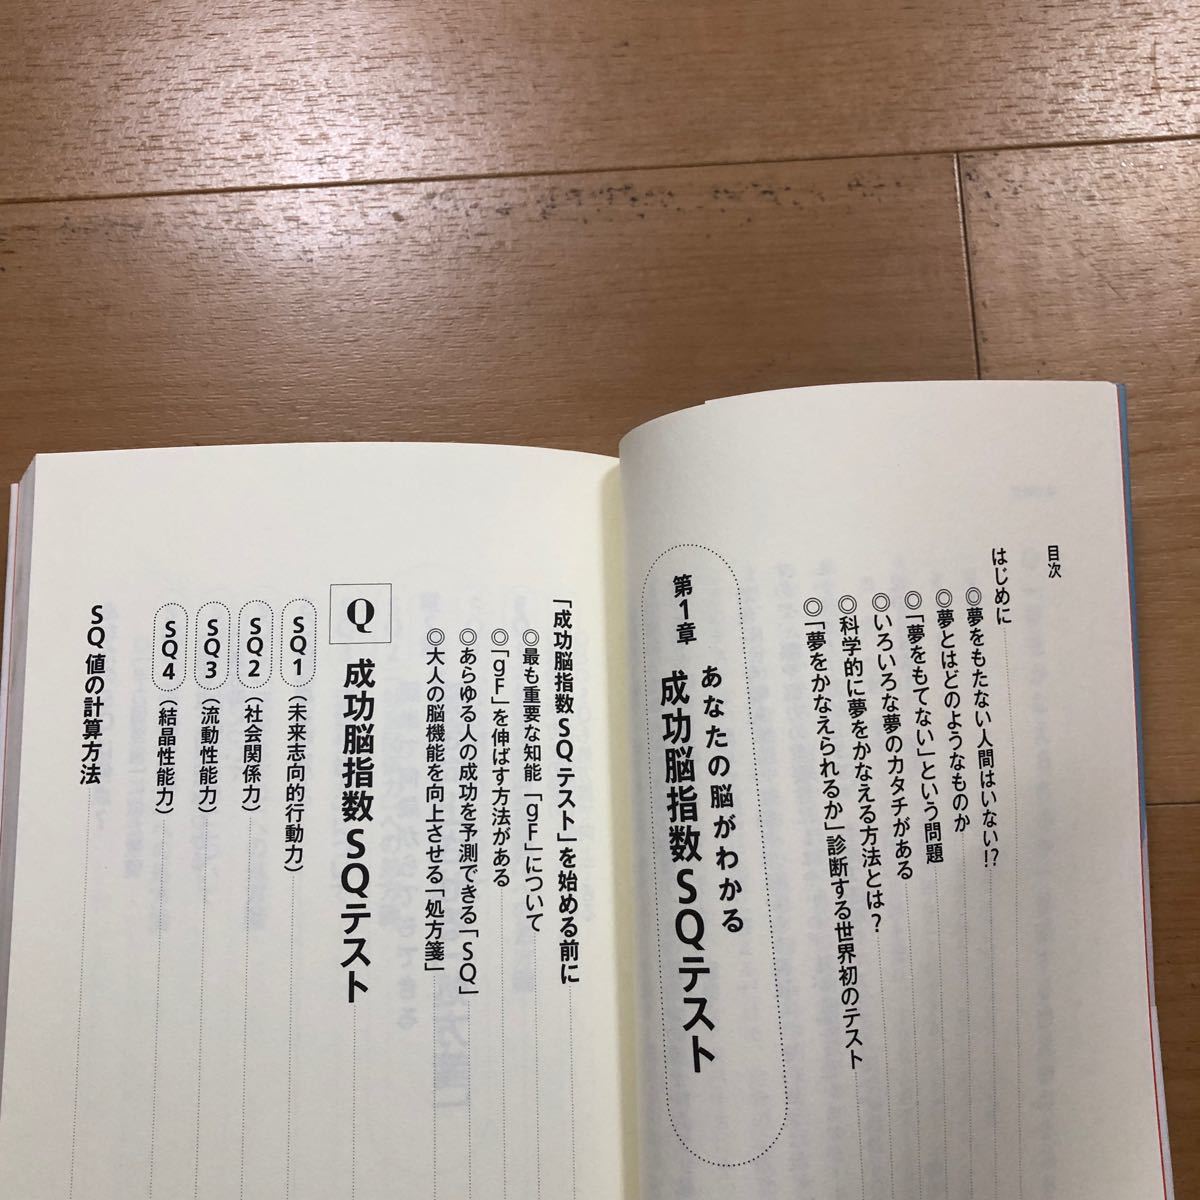 目次
はじめに
◎夢をもたない人間はいない!?
◎夢とはどのようなものか
◎「夢をもてない」という問題
◎いろいろな夢のカタチがある
◎科学的に夢をかなえる方法とは?
◎「夢をかなえられるか」診断する世界初のテスト
第1章 あなたの脳がわかる
成功脳指数SQテスト
「成功脳指数SQテスト」を始める前に
◎最も重要な知能「gF」について
◎「gF」を伸ばす方法がある
◎あらゆる人の成功を予測できる「SQ」
◎大人の脳機能を向上させる「処方箋」
Q 成功脳指数SQテスト
SQ1（未来志向的行動力）
SQ2（社会関係力）
SQ3（流動性能力）
SQ4（結晶性能力）
SQ値の計算方法